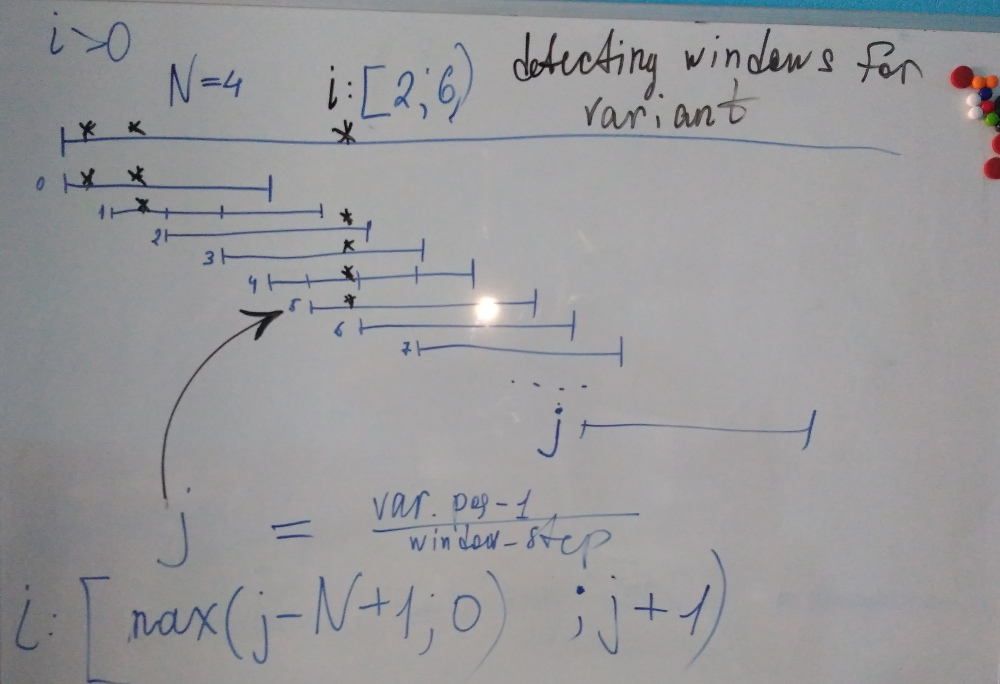 i>0
N=4 i:[2;6)
detecting windows for
variant
0
1
2
3
4
5
6
7
....
j
j = var.pos-1
window-step
i:[max(j-N+1;0) ;j+1)